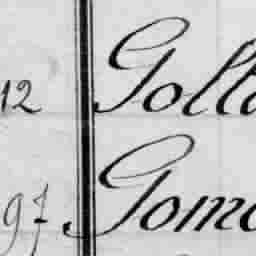 12 Goll
97 Gom